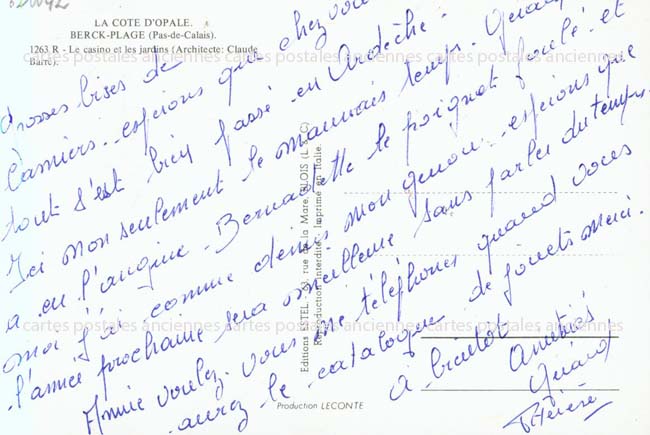 LA COTE D'OPALE.
BERCK-PLAGE (Pas-de-Calais).
1263 R - Le casino et les jardins (Architecte: Claude
Barre).
Grosses bises de
Camiers - espérons que chez vous
tout s'est bien passé en Ardèche.
Ici non seulement le mauvais temps.
a eu l'angine - Bernadette le poignet foulé et
moi j'ai comme dernis mon genou - espérons que
l'année prochaine sera meilleure sans parler du temps.
Annie voulez-vous me téléphoner quand vous
aurez le catalogue de jouets merci.
à bientôt Amitiés
Thérèse
Editions ESTEL - rue de la Mare, BLOIS (L.-&-C.)
Reproduction interdite. Imprimé en Italie.
Production LECONTE
cartes postales anciennes cartes postales anciennes cartes postales anciennes
cartes postales anciennes cartes postales anciennes cartes postales anciennes